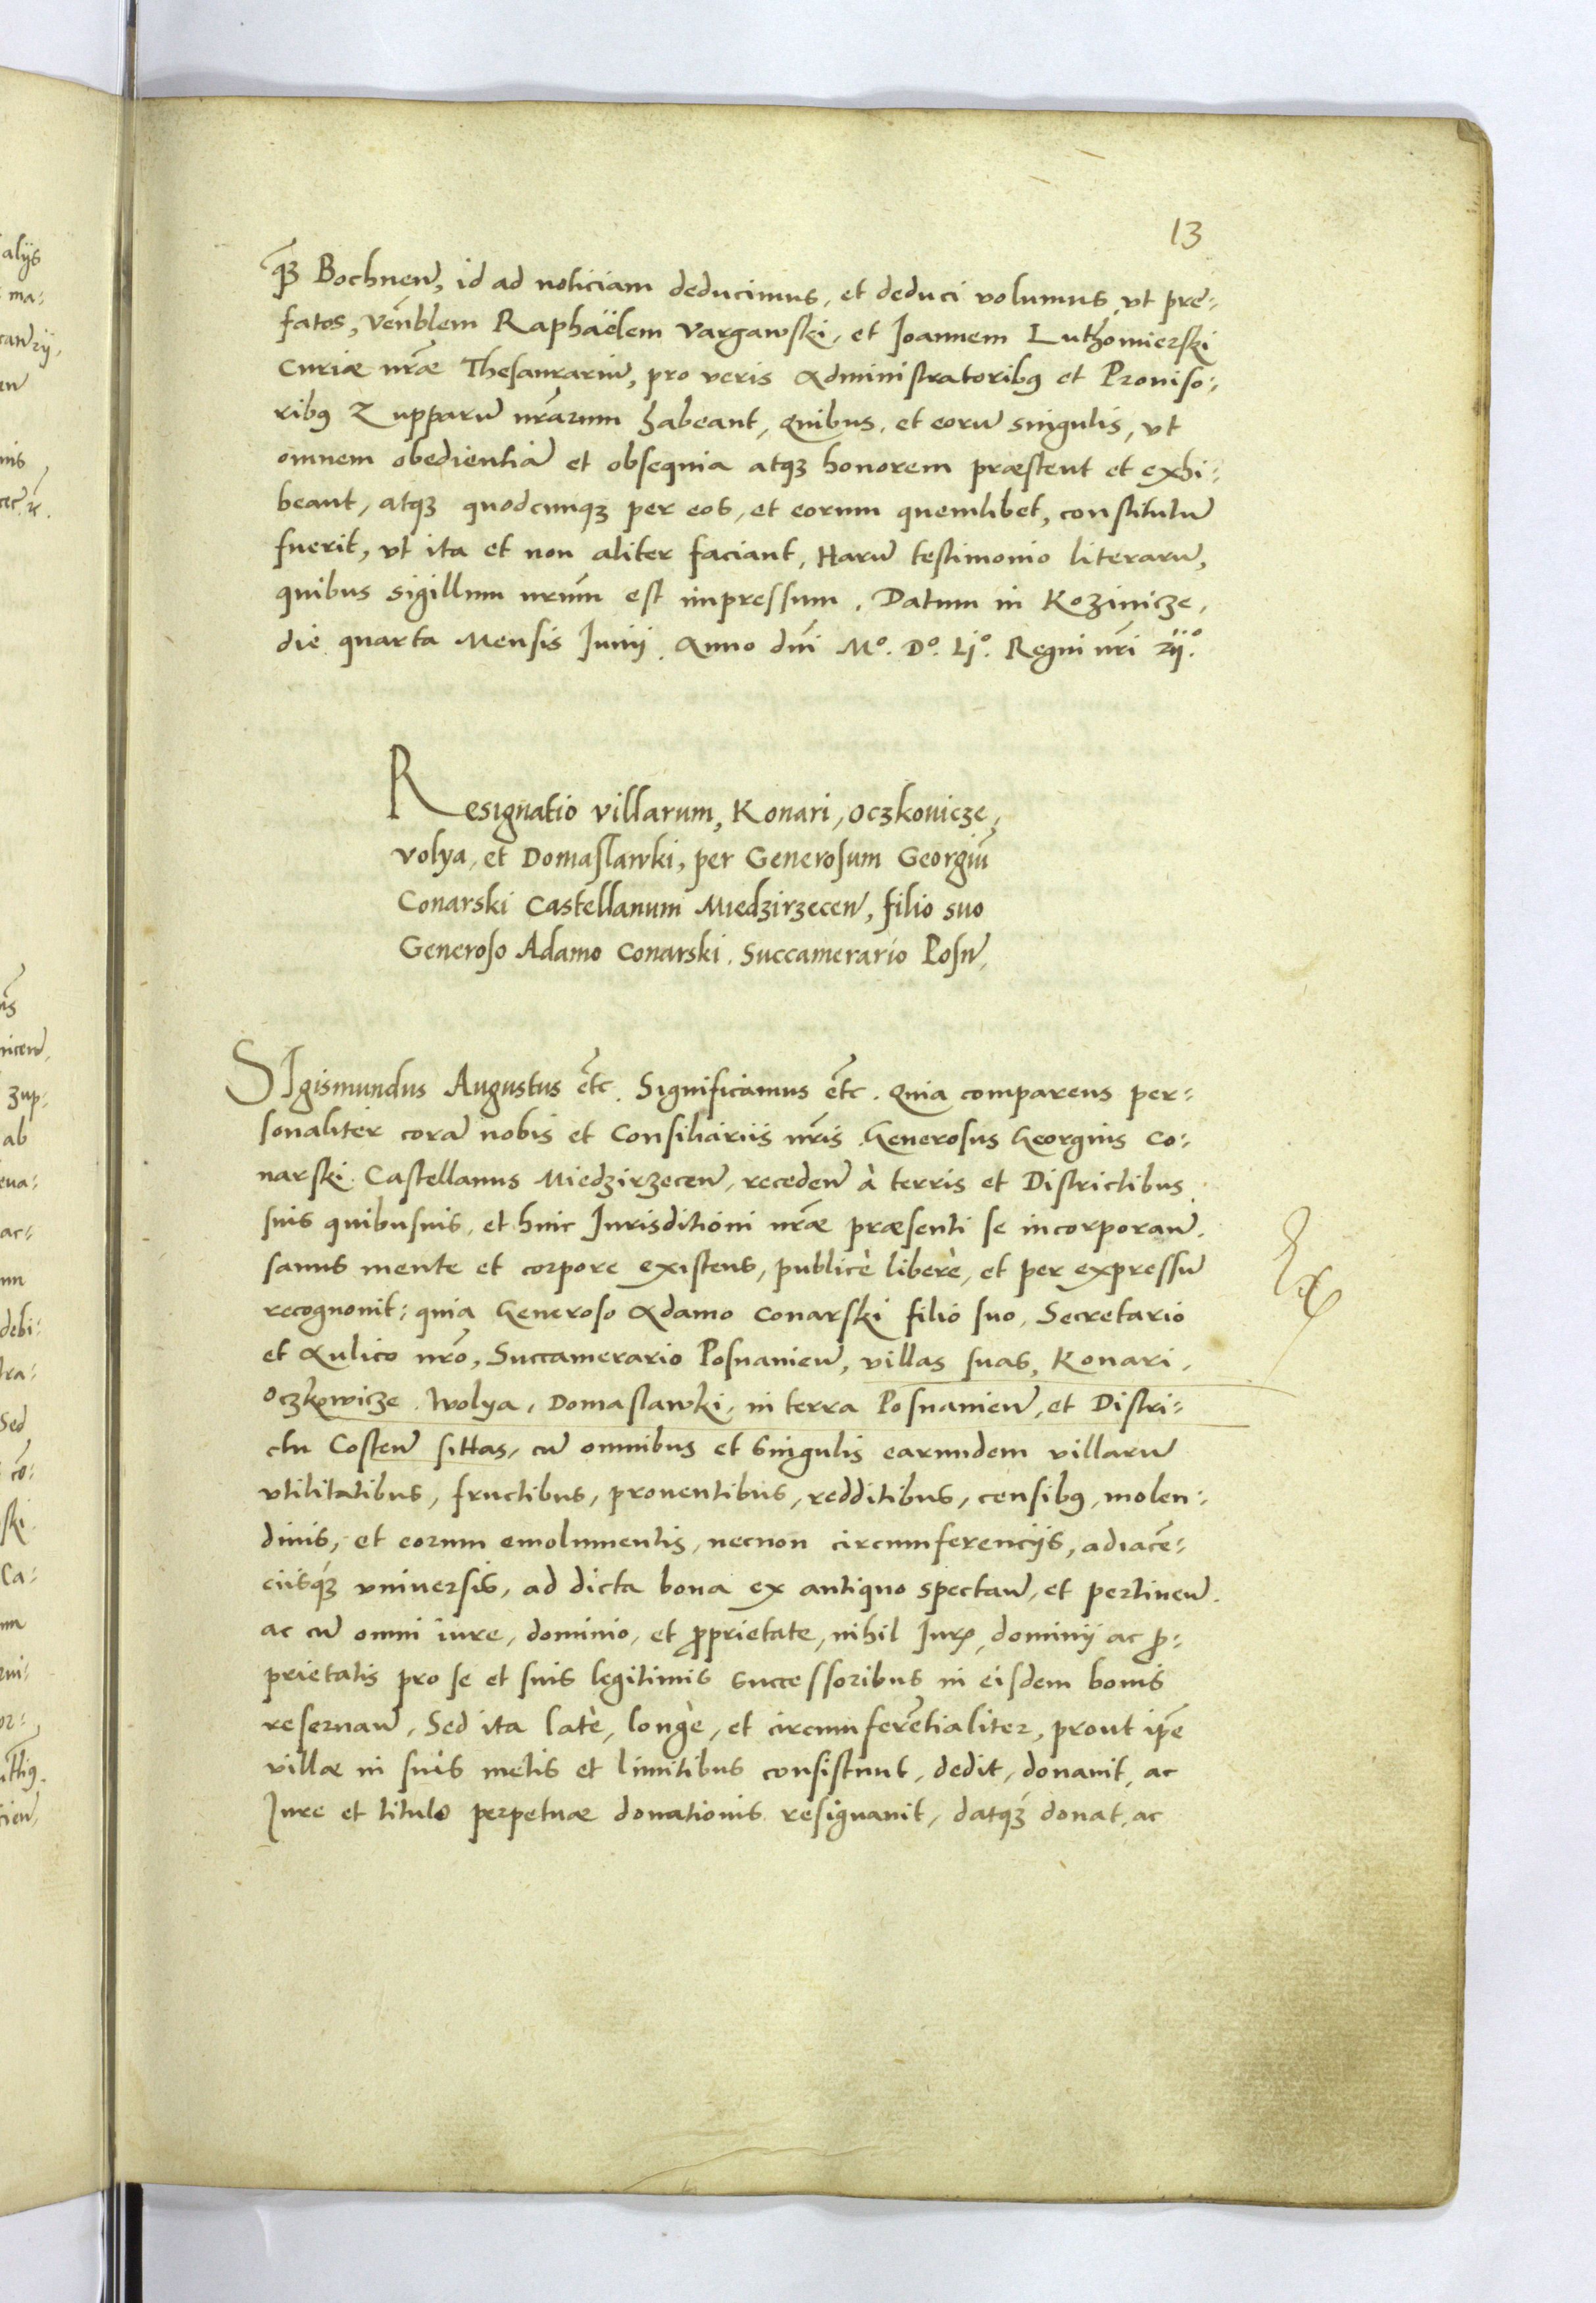 13
q̃ꝫ Bochnen̄, id ad noticiam deducimus, et deduci volumus, vt pre⸗
fatos, Venb̃lem Raphaëlem Vargawski, et Joannem Luthomierski
Curiæ nr̃æ Thesaurariū, pro veris Administratoribꝰ et Prouiso⸗
ribꝰ Zupparū nr̃arum habeant, quibus, et eorū singulis, vt
omnem obedientiā et obsequia atqꝫ honorem præstent et exhi⸗
beant, atqꝫ quodcunqꝫ per eos, et eorum quemlibet, constitutū
fuerit, vt ita et non aliter faciant, Harū testimonio literarū,
quibus sigillum nr̃um est impressum. Datum in Kozinicze,
die quarta Mensis Junij. Anno dn̄i Mº. Dº. Ljº. Regni nr̄i xijº.
Resignatio villarum, Konari, Oczkouicze,
Volya, et Domaslawki, per Generosum Georgiū
Conarski Castellanum Miedzirzecen̄, filio suo
Generoso Adamo Conarski. Succamerario Posn̄,
SIgismundus Augustus etc̄. Significamus etc̄. Quia comparens per⸗
sonaliter corā nobis et Consiliariis nr̃is Generosus Georgius Co⸗
narski Castellanus Miedzirzecen̄, receden̄ à terris et Districtibus
suis quibusuis, et huic Jurisditioni nr̃æ præsenti se incorporan̄.
sanus mente et corpore existens, publicè liberè, et per expressū
recognouit: quia Generoso Adamo Conarski filio suo, Secretario
et Aulico nr̃o, Succamerario Posnanien̄, villas suas, Konari,
Oczkowicze, Wolya, Domaslawki, in terra Posnanien̄, et Distri⸗
ctu Costen̄ sittas, cū omnibus et singulis earundem villarū
vtilitatibus, fructibus, prouentibus, redditibus, censibꝰ, molen⸗
dinis, et eorum emolumentis, necnon circumferencijs, adiacē⸗
ciisqꝫ́ vniuersis, ad dicta bona ex antiquo spectan̄, et pertinen̄.
ac cū omni iure, dominio, et ꝓprietate, nihil Juris, dominij ac ꝓ⸗
prietatis pro se et suis legitimis successoribus in eisdem bonis
reseruan̄, Sed ita latè, longè, et circumferēntialiter, prout ip̃e
villæ in suis metis et limitibus consistunt, dedit, donauit, ac
Jure et titulo perpetuæ donationis resignauit, datqꝫ́ donat, ac